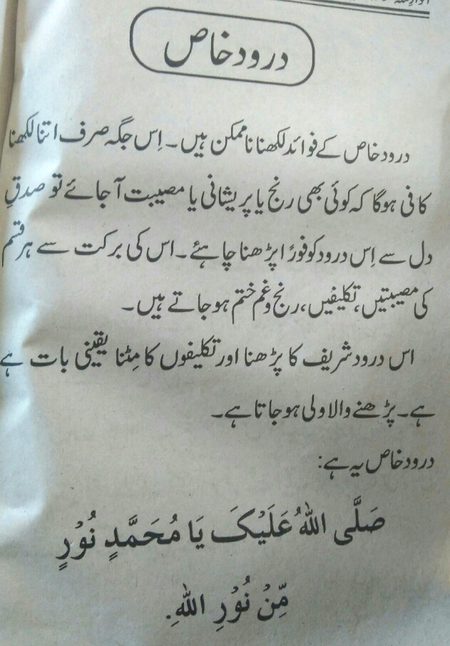 درود خاص
درود خاص کے فوائد لکھنا ناممکن ہیں۔ اِس جگہ صرف اتنا لکھنا
کافی ہوگا کہ کوئی بھی رنج یا پریشانی یا مصیبت آ جائے تو صدقِ
دل سے اِس درود کو فورًا پڑھنا چاہئے۔ اس کی برکت سے ہر قسم
کی مصیبتیں، تکلیفیں، رنج و غم ختم ہو جاتے ہیں۔
اس درود شریف کا پڑھنا اور تکلیفوں کا مِٹنا یقینی بات ہے
ہے۔ پڑھنے والا ولی ہو جاتا ہے۔
درود خاص یہ ہے:
صَلَّی اللهُ عَلَیْکَ یَا مُحَمَّدٍ نُوْرٍ
مِّنْ نُوْرِ اللهِ.